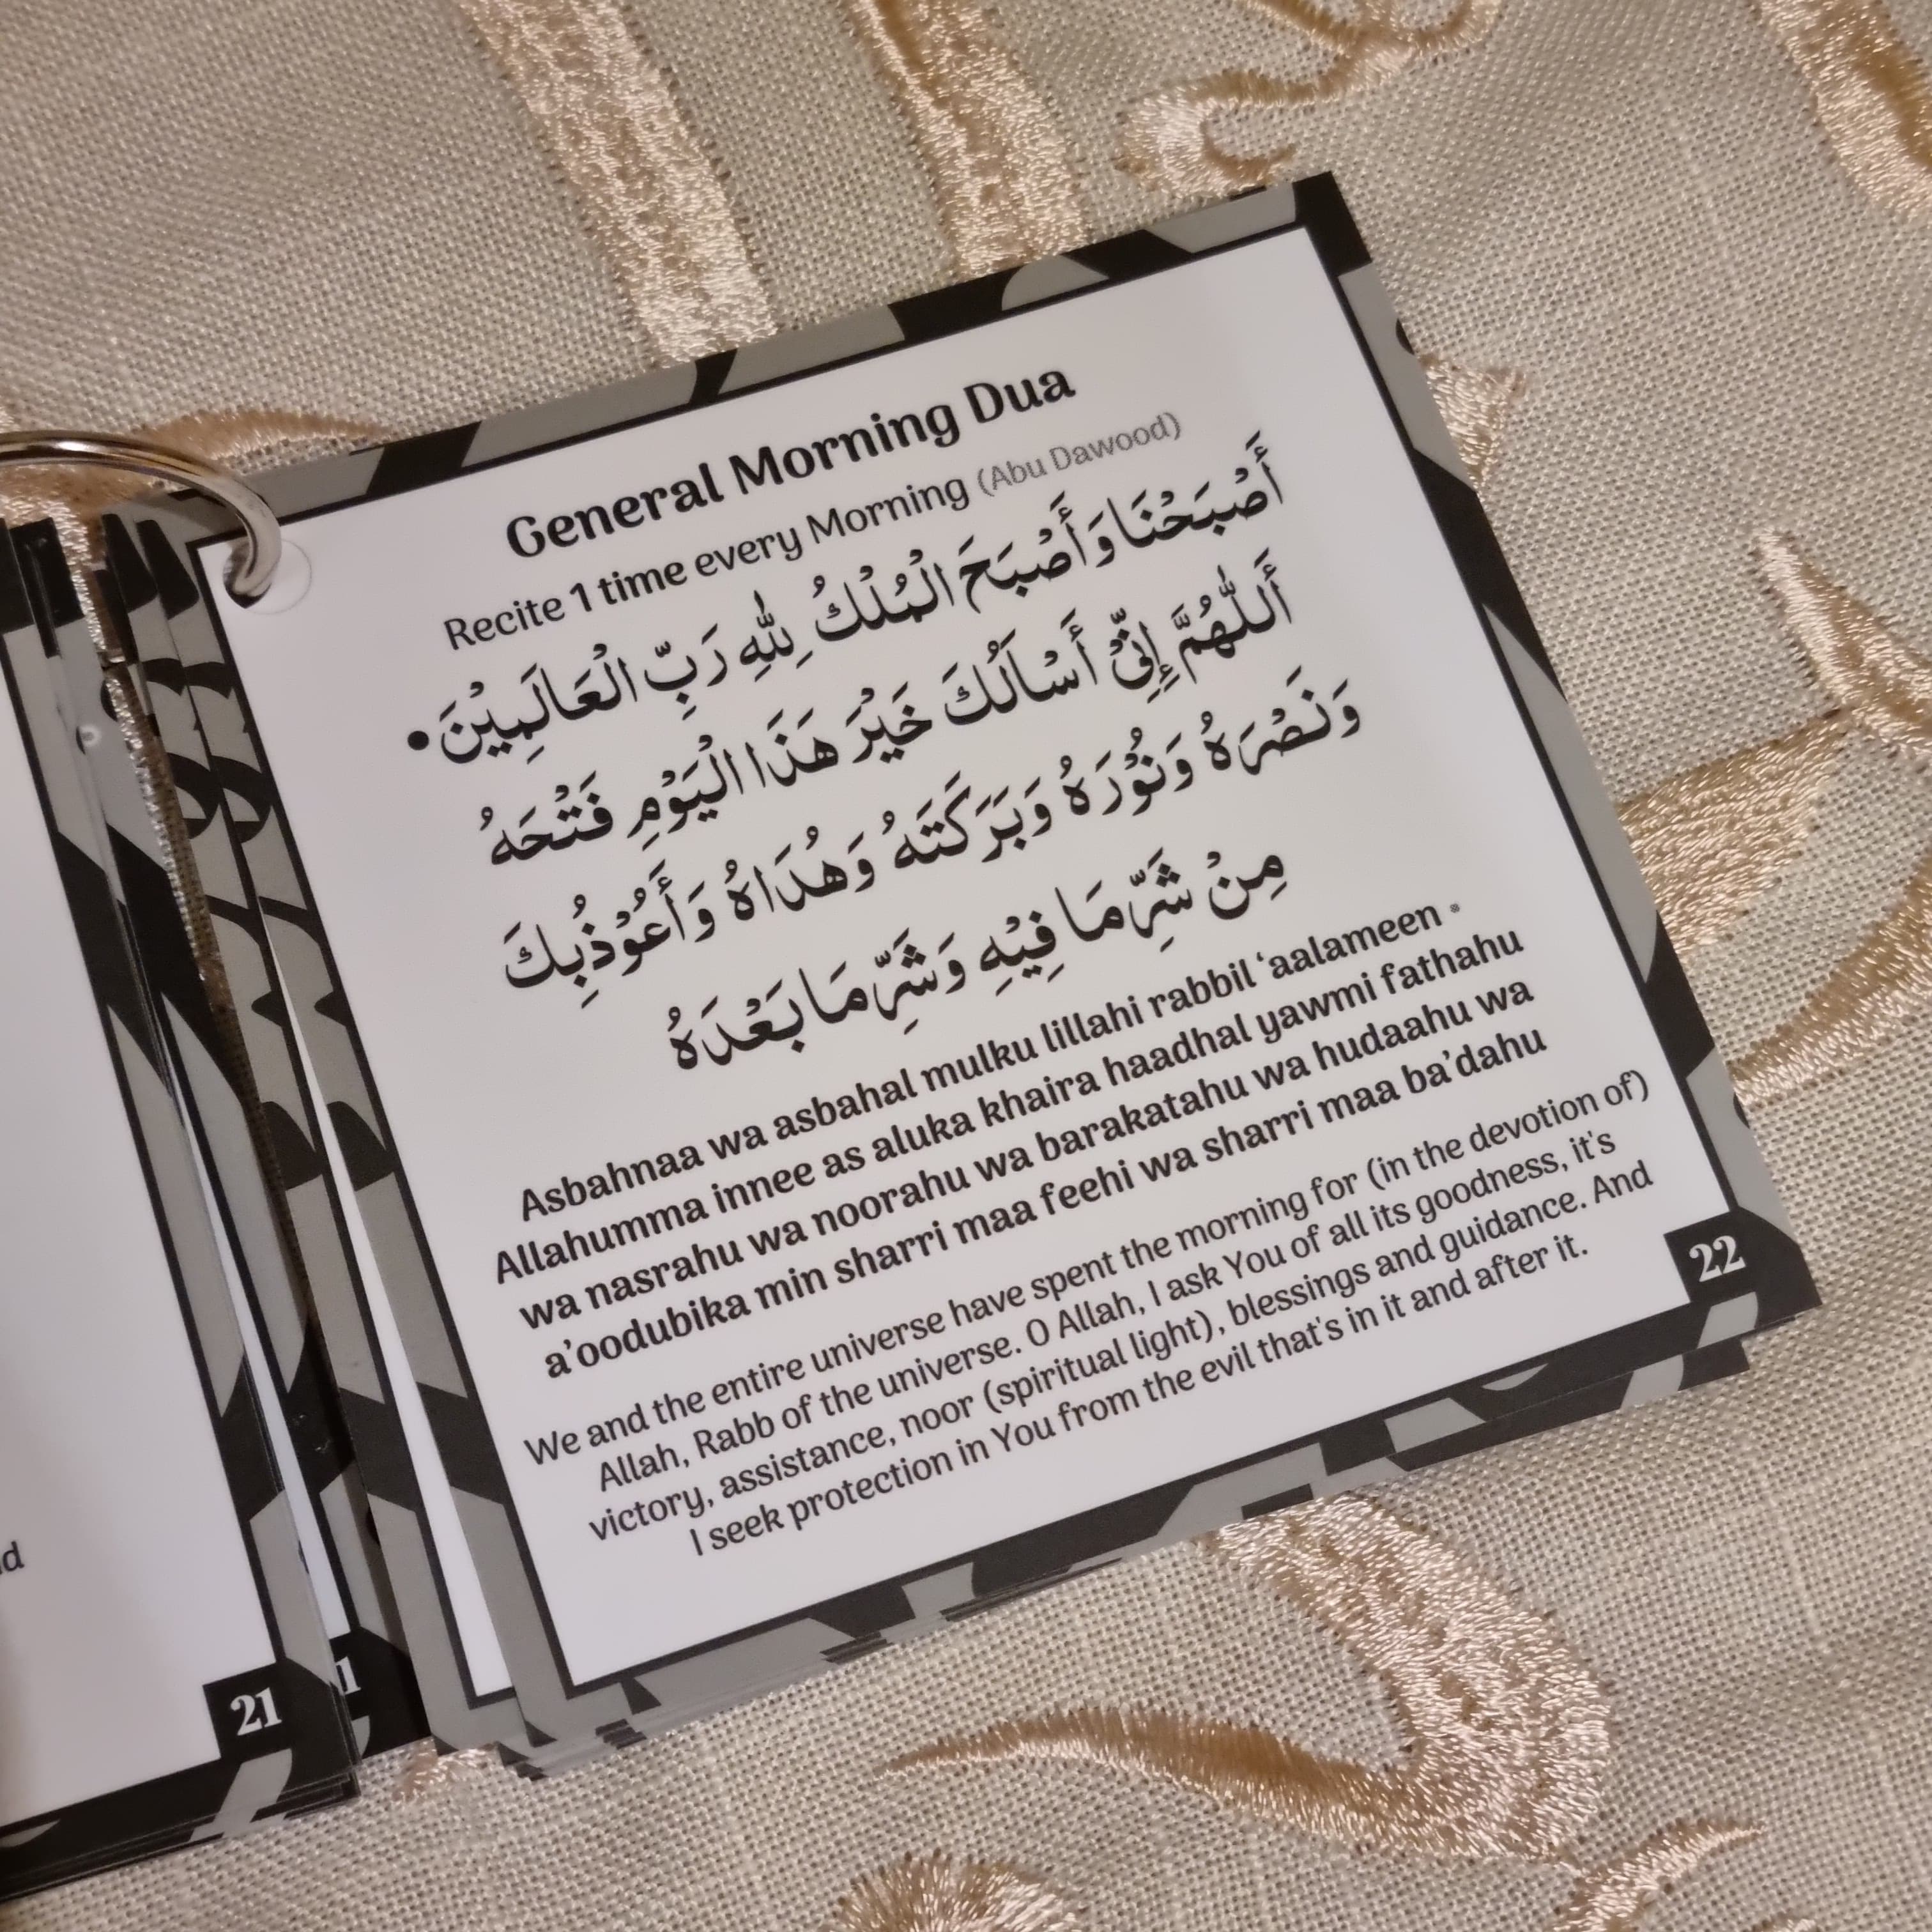 General Morning Dua
Recite 1 time every Morning (Abu Dawood)
أَصْبَحْنَا وَأَصْبَحَ الْمُلْكُ لِلّٰهِ رَبِّ الْعَالَمِيْنَ •
أَللّٰهُمَّ إِنِّيْ أَسْاَلُكَ خَيْرَ هَذَا الْيَوْمِ فَتْحَهُ
وَنَصْرَهُ وَنُوْرَهُ وَبَرَكَتَهُ وَهُدَاهُ وَأَعُوْذُبِكَ
مِنْ شَرِّ مَا فِيْهِ وَشَرِّ مَا بَعْدَهُ
Asbahnaa wa asbahal mulku lillahi rabbil ‘aalameen •
Allahumma innee as aluka khaira haadhal yawmi fathahu
wa nasrahu wa noorahu wa barakatahu wa hudaahu wa
a’oodubika min sharri maa feehi wa sharri maa ba’dahu
We and the entire universe have spent the morning for (in the devotion of)
Allah, Rabb of the universe. O Allah, I ask You of all its goodness, it's
victory, assistance, noor (spiritual light), blessings and guidance. And
I seek protection in You from the evil that's in it and after it.
22
21